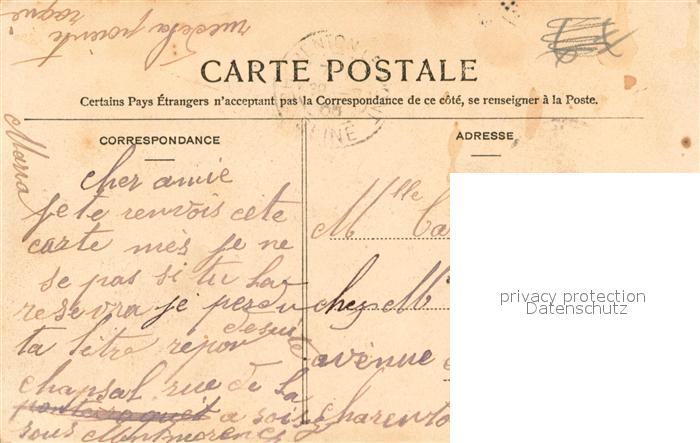 rue de la pointe
CARTE POSTALE
Certains Pays Étrangers n'acceptant pas la Correspondance de ce côté, se renseigner à la Poste.
CORRESPONDANCE
cher amie
je te renvois cete
carte mes je ne
se pas si tu la
resevra je perdu
ta letre repon
de suite
chapsal rue de la
a sois
sous Montmorency
Maria
ADRESSE
Mlle
chez M
avenue
charento
privacy protection
Datenschutz